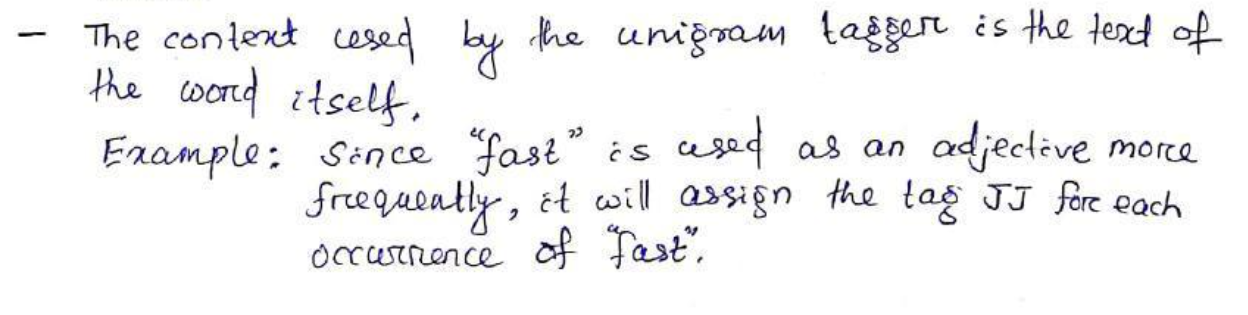 - The context used by the unigram tagger is the text of
the word itself.
Example: Since "fast" is used as an adjective more
frequently, it will assign the tag JJ for each
occurrence of "fast".